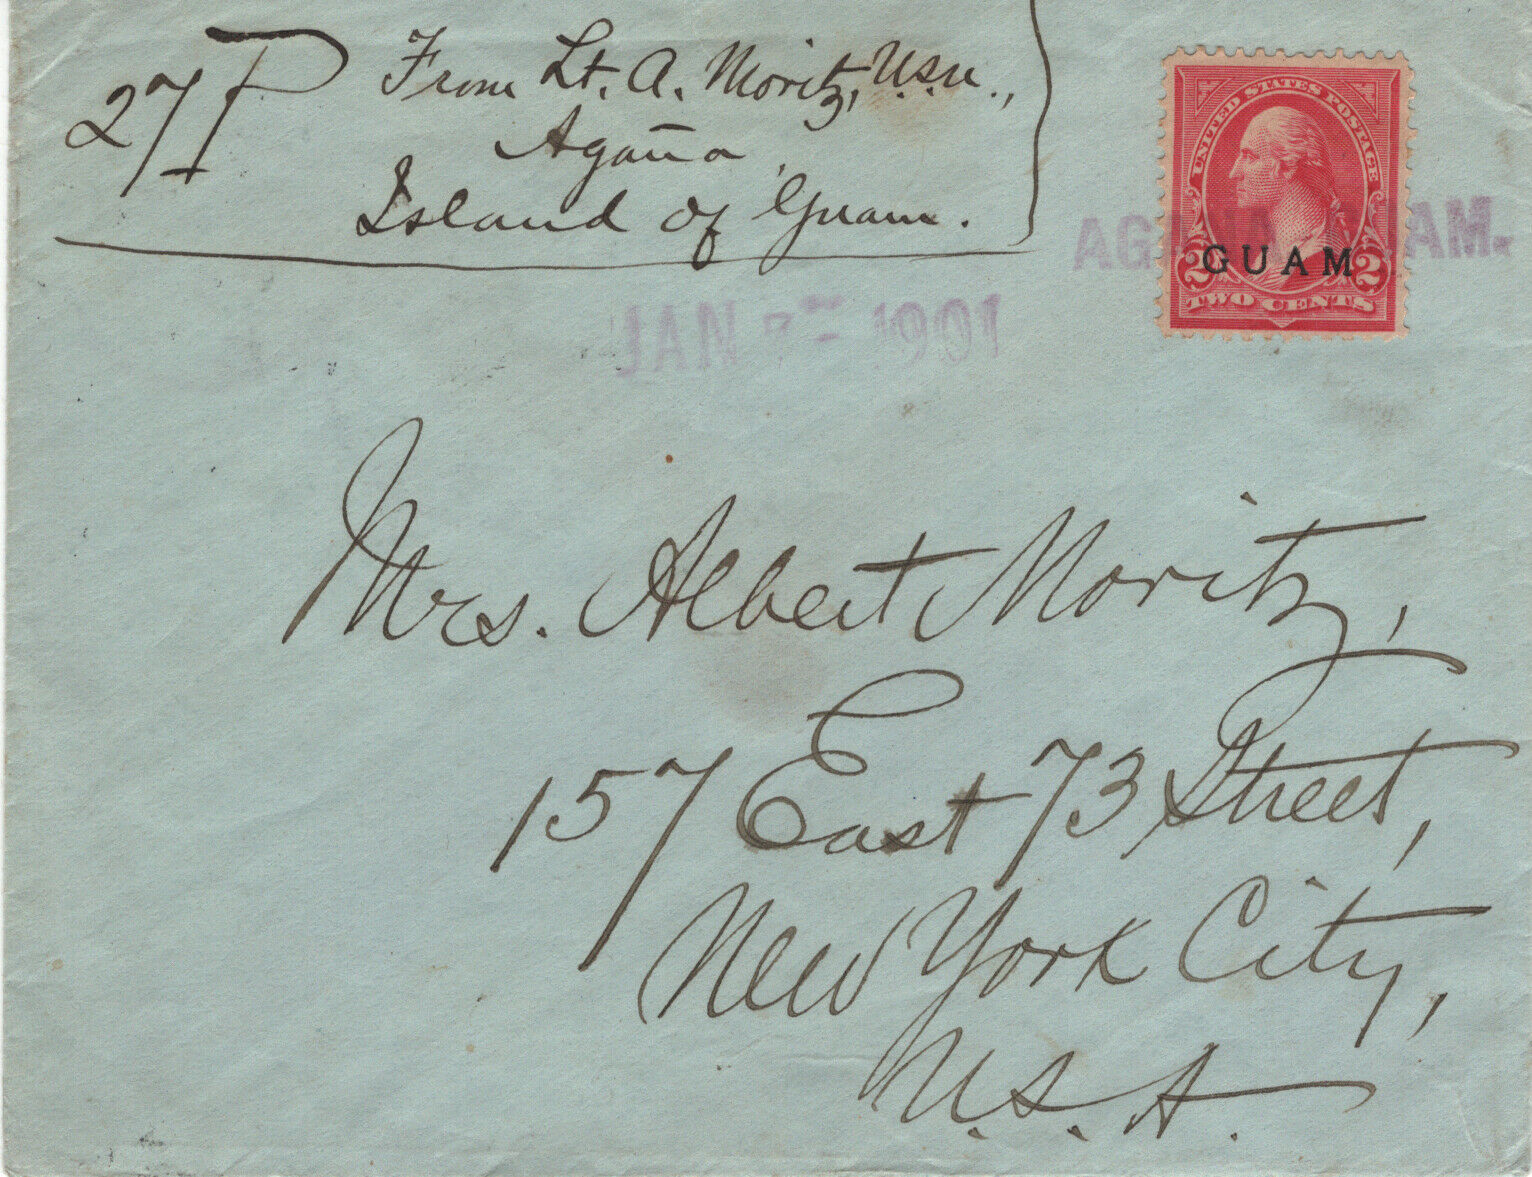 From Lt. A. Moritz, U.S.N.,
Agaña
Island of Guam.
UNITED STATES POSTAGE
GUAM
2 2
TWO CENTS
AGANA, GUAM.
JAN 1901
Mrs. Albert Moritz,
157 East 73 Street,
New York City,
U.S.A.